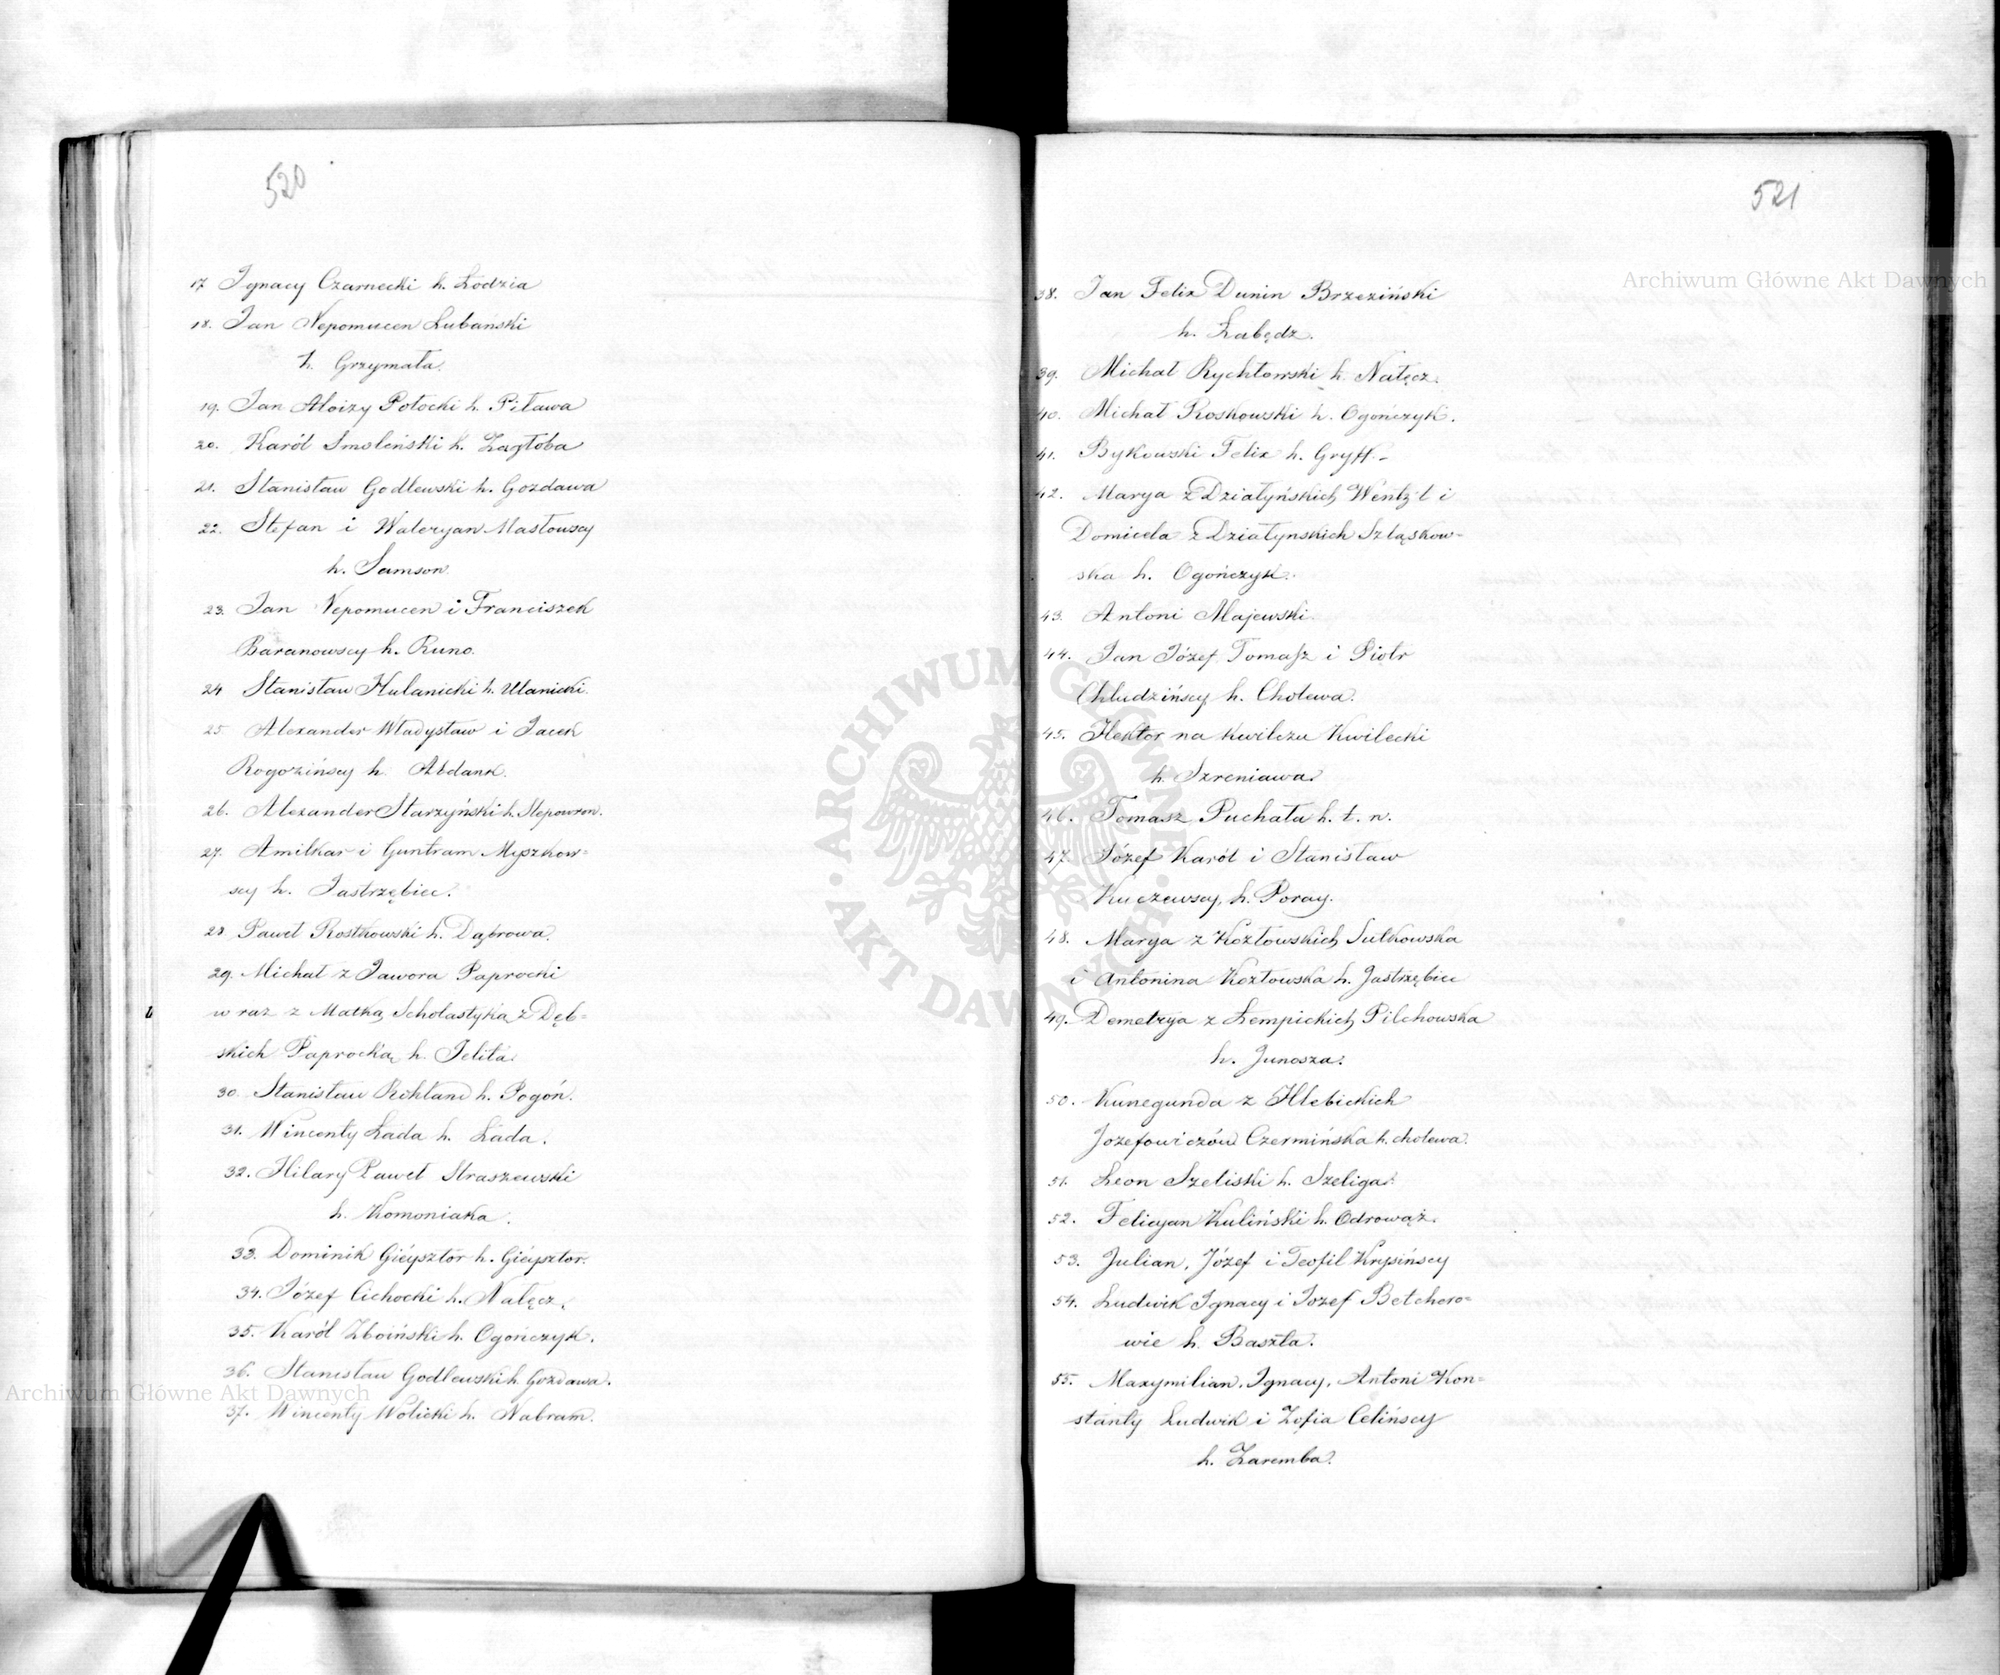 520
17 Ignacy Czarnecki h. Łodzia
18. Jan Nepomucen Lubański
h. Grzymała.
19. Jan Aloizy Potocki h. Piława
20. Karól Smoleński h. Zagłoba
21. Stanisław Godlewski h. Gozdawa
22. Stefan i Waleryan Masłowscy
h. Samson.
23. Jan Nepomucen i Franciszek
Baranowscy h. Runo.
24 Stanisław Hulanicki h. Ulanicki.
25. Alexander Władysław i Jacek
Rogozińscy h. Abdank.
26. Alexander Starzyński h. Slepowron.
27. Amilkar i Guntram Myszkow=
scy h. Jastrzębiec.
28 Paweł Rostkowski h. Dąbrowa.
29. Michał z Jawora Paprocki
wraz z Matką Scholastyką z Dęb=
skich Paprocką h. Jelita.
30. Stanisław Rohland h. Pogoń.
31. Wincenty Łada h. Łada.
32. Hilary Paweł Straszewski
h. Komoniaka.
33. Dominik Giéysztor h. Giéysztor.
34. Józef Cichocki h. Nałęcz.
35. Karól Zboiński h. Ogończyk.
36. Stanisław Godlewski h. Gozdawa.
37. Wincenty Wolicki h. Nabram.
521
38. Jan Felix Dunin Brzeziński
h. Łabędz.
39. Michał Rychłowski h. Nałęcz.
40. Michał Roskowski h. Ogończyk.
41. Bykowski Felix h. Gryff.
42. Marya z Działyńskich Wentz'l i
Domicela z Działynskich Szląskow=
ska h. Ogończyk.
43. Antoni Majewski.
44. Jan Józef Tomasz i Piotr
Chludzińscy h. Cholewa.
45. Hektor na Kwilczu Kwilecki
h. Szreniawa.
46. Tomasz Puchała h. t. n.
47. Józef Karól i Stanisław
Kuczewscy, h. Poray.
48. Marya z Kozłowskich Sulkowska
i Antonina Kozłowska h. Jastrzębiec
49. Demetryja z Łempickich Pilchowska
h. Junosza.
50. Kunegunda z Hlebickich
Jozefowiczów Czermińska h. cholewa.
51. Leon Szeliski h. Szeliga.
52. Felicyan Kuliński h. Odrowąż.
53. Julian, Józef i Teofil Krysińscy
54. Ludwik Ignacy i Jozef Betchero=
wie h. Baszta.
55. Maxymilian, Ignacy, Antoni Kon=
stanty Ludwik i Zofia Celińscy
h. Zaremba.
Archiwum Główne Akt Dawnych
Archiwum Główne Akt Dawnych
ARCHIWUM GŁÓWNE
AKT DAWNYCH